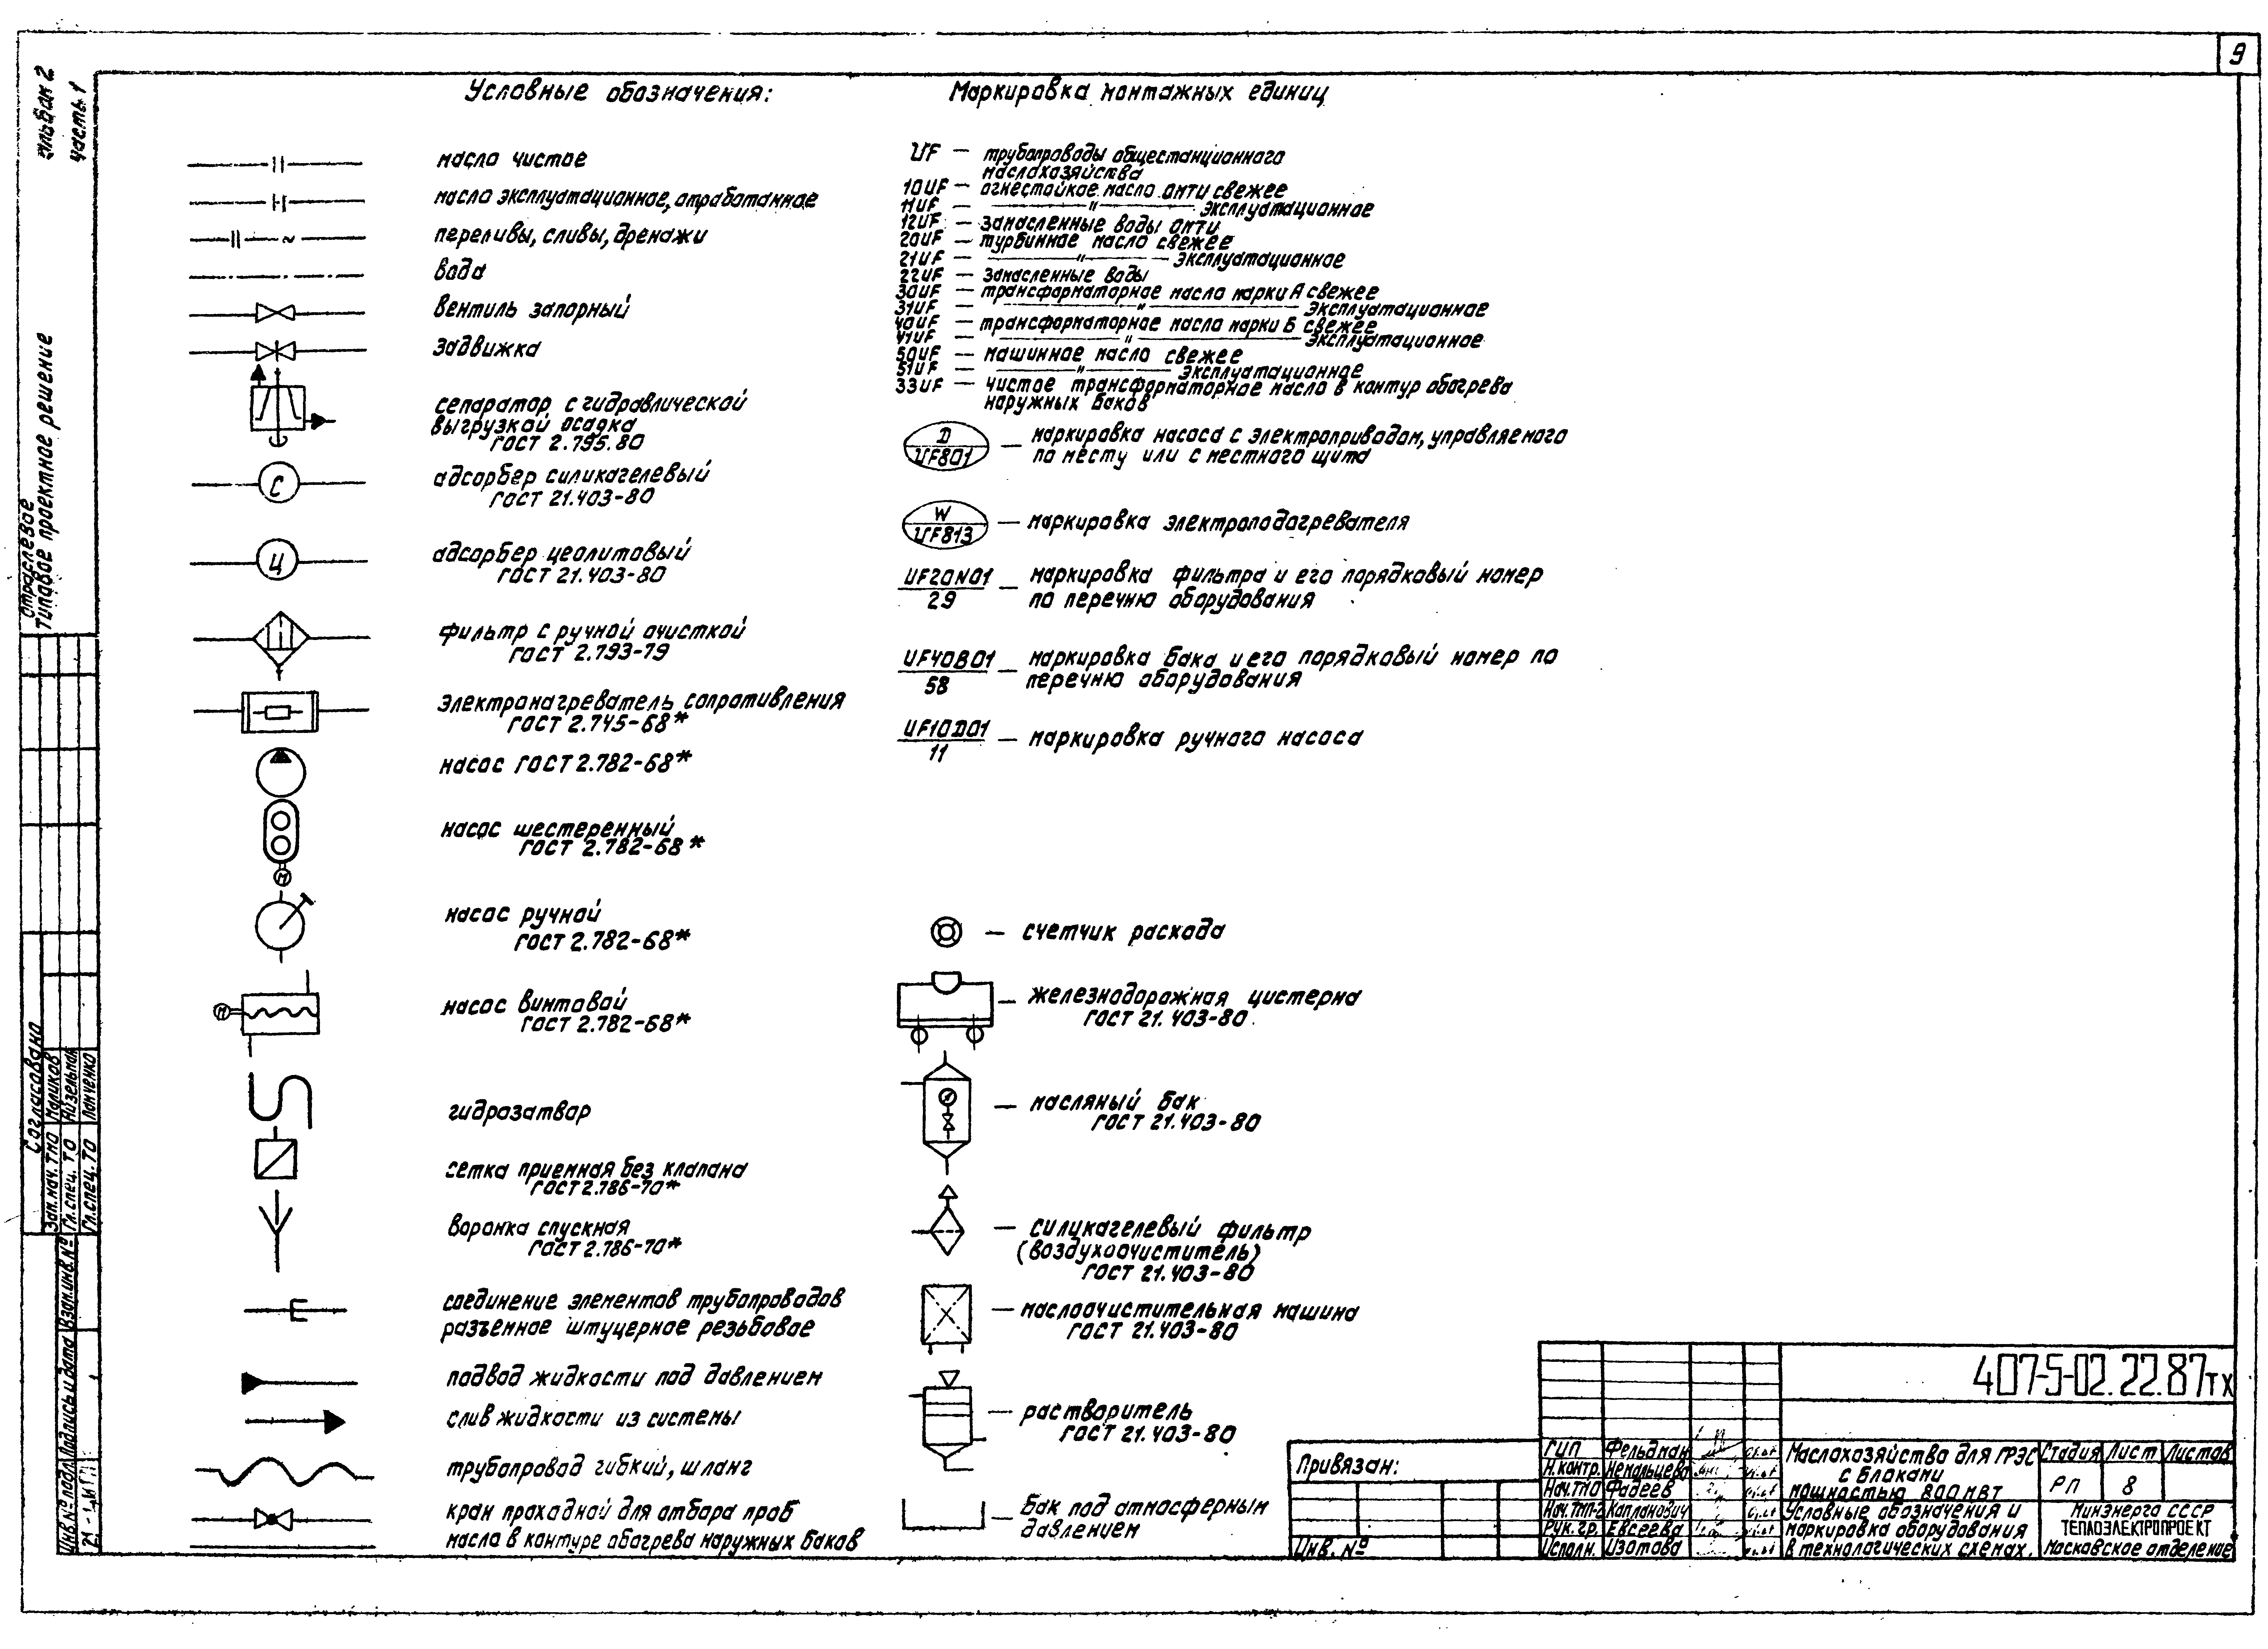 9
Альбом 2
часть 1
Отраслевое
типовое проектное решение
Условные обозначения:
масло чистое
масло эксплуатационное, отработанное
переливы, сливы, дренажи
вода
вентиль запорный
задвижка
сепаратор с гидравлической
выгрузкой осадка
ГОСТ 2.795.80
С
адсорбер силикагелевый
ГОСТ 21.403-80
Ц
адсорбер цеолитовый
ГОСТ 21.403-80
фильтр с ручной очисткой
ГОСТ 2.793-79
электронагреватель сопротивления
ГОСТ 2.745-68*
насос ГОСТ 2.782-68*
насос шестеренный
ГОСТ 2.782-68*
М
насос ручной
ГОСТ 2.782-68*
М
насос винтовой
ГОСТ 2.782-68*
гидрозатвор
сетка приемная без клапана
ГОСТ 2.786-70*
воронка спускная
ГОСТ 2.786-70*
соединение элементов трубопроводов
разъемное штуцерное резьбовое
подвод жидкости под давлением
слив жидкости из системы
трубопровод гибкий, шланг
кран проходной для отбора проб
масло в контуре обогрева наружных баков
Маркировка монтажных единиц
UF — трубопроводы общестанционного
маслохозяйства
10UF — огнестойкое масло ОМТИ свежее
11UF — " эксплуатационное
12UF — замасленные воды ОМТИ
20UF — турбинное масло свежее
21UF — " эксплуатационное
22UF — замасленные воды
30UF — трансформаторное масло марки А свежее
31UF — " эксплуатационное
40UF — трансформаторное масло марки Б свежее
41UF — " эксплуатационное
50UF — машинное масло свежее
51UF — " эксплуатационное
33UF — чистое трансформаторное масло в контур обогрева
наружных баков
D
UF801
— маркировка насоса с электроприводом, управляемого
по месту или с местного щита
W
UF813
— маркировка электроподогревателя
UF20N01
29
— маркировка фильтра и его порядковый номер
по перечню оборудования
UF40B01
58
— маркировка бака и его порядковый номер по
перечню оборудования
UF10D01
11
— маркировка ручного насоса
— счетчик расхода
— железнодорожная цистерна
ГОСТ 21.403-80
— масляный бак
ГОСТ 21.403-80
— силикагелевый фильтр
(воздухоочиститель)
ГОСТ 21.403-80
— маслоочистительная машина
ГОСТ 21.403-80
— растворитель
ГОСТ 21.403-80
— бак под атмосферным
давлением
Согласовано
Зам.нач. ТМО Маликов
Гл.спец. ТО Айзельман
Гл.спец. ТО Панченко
Взам.инв.№
Подпись и дата
Инв.№ подл.
Привязан:
Инв. №
407-5-02.22.87 ТХ
ГИП Фельдман
Н.контр. Немальцева
Нач.ТМО Фадеев
Нач.ТМП-2 Капланович
Рук.гр. Евсеева
Исполн. Изотова
Маслохозяйство для ГРЭС
с блоками
мощностью 800 МВт
Стадия Лист Листов
РП 8
Условные обозначения и
маркировка оборудования
в технологических схемах.
Минэнерго СССР
ТЕПЛОЭЛЕКТРОПРОЕКТ
Московское отделение